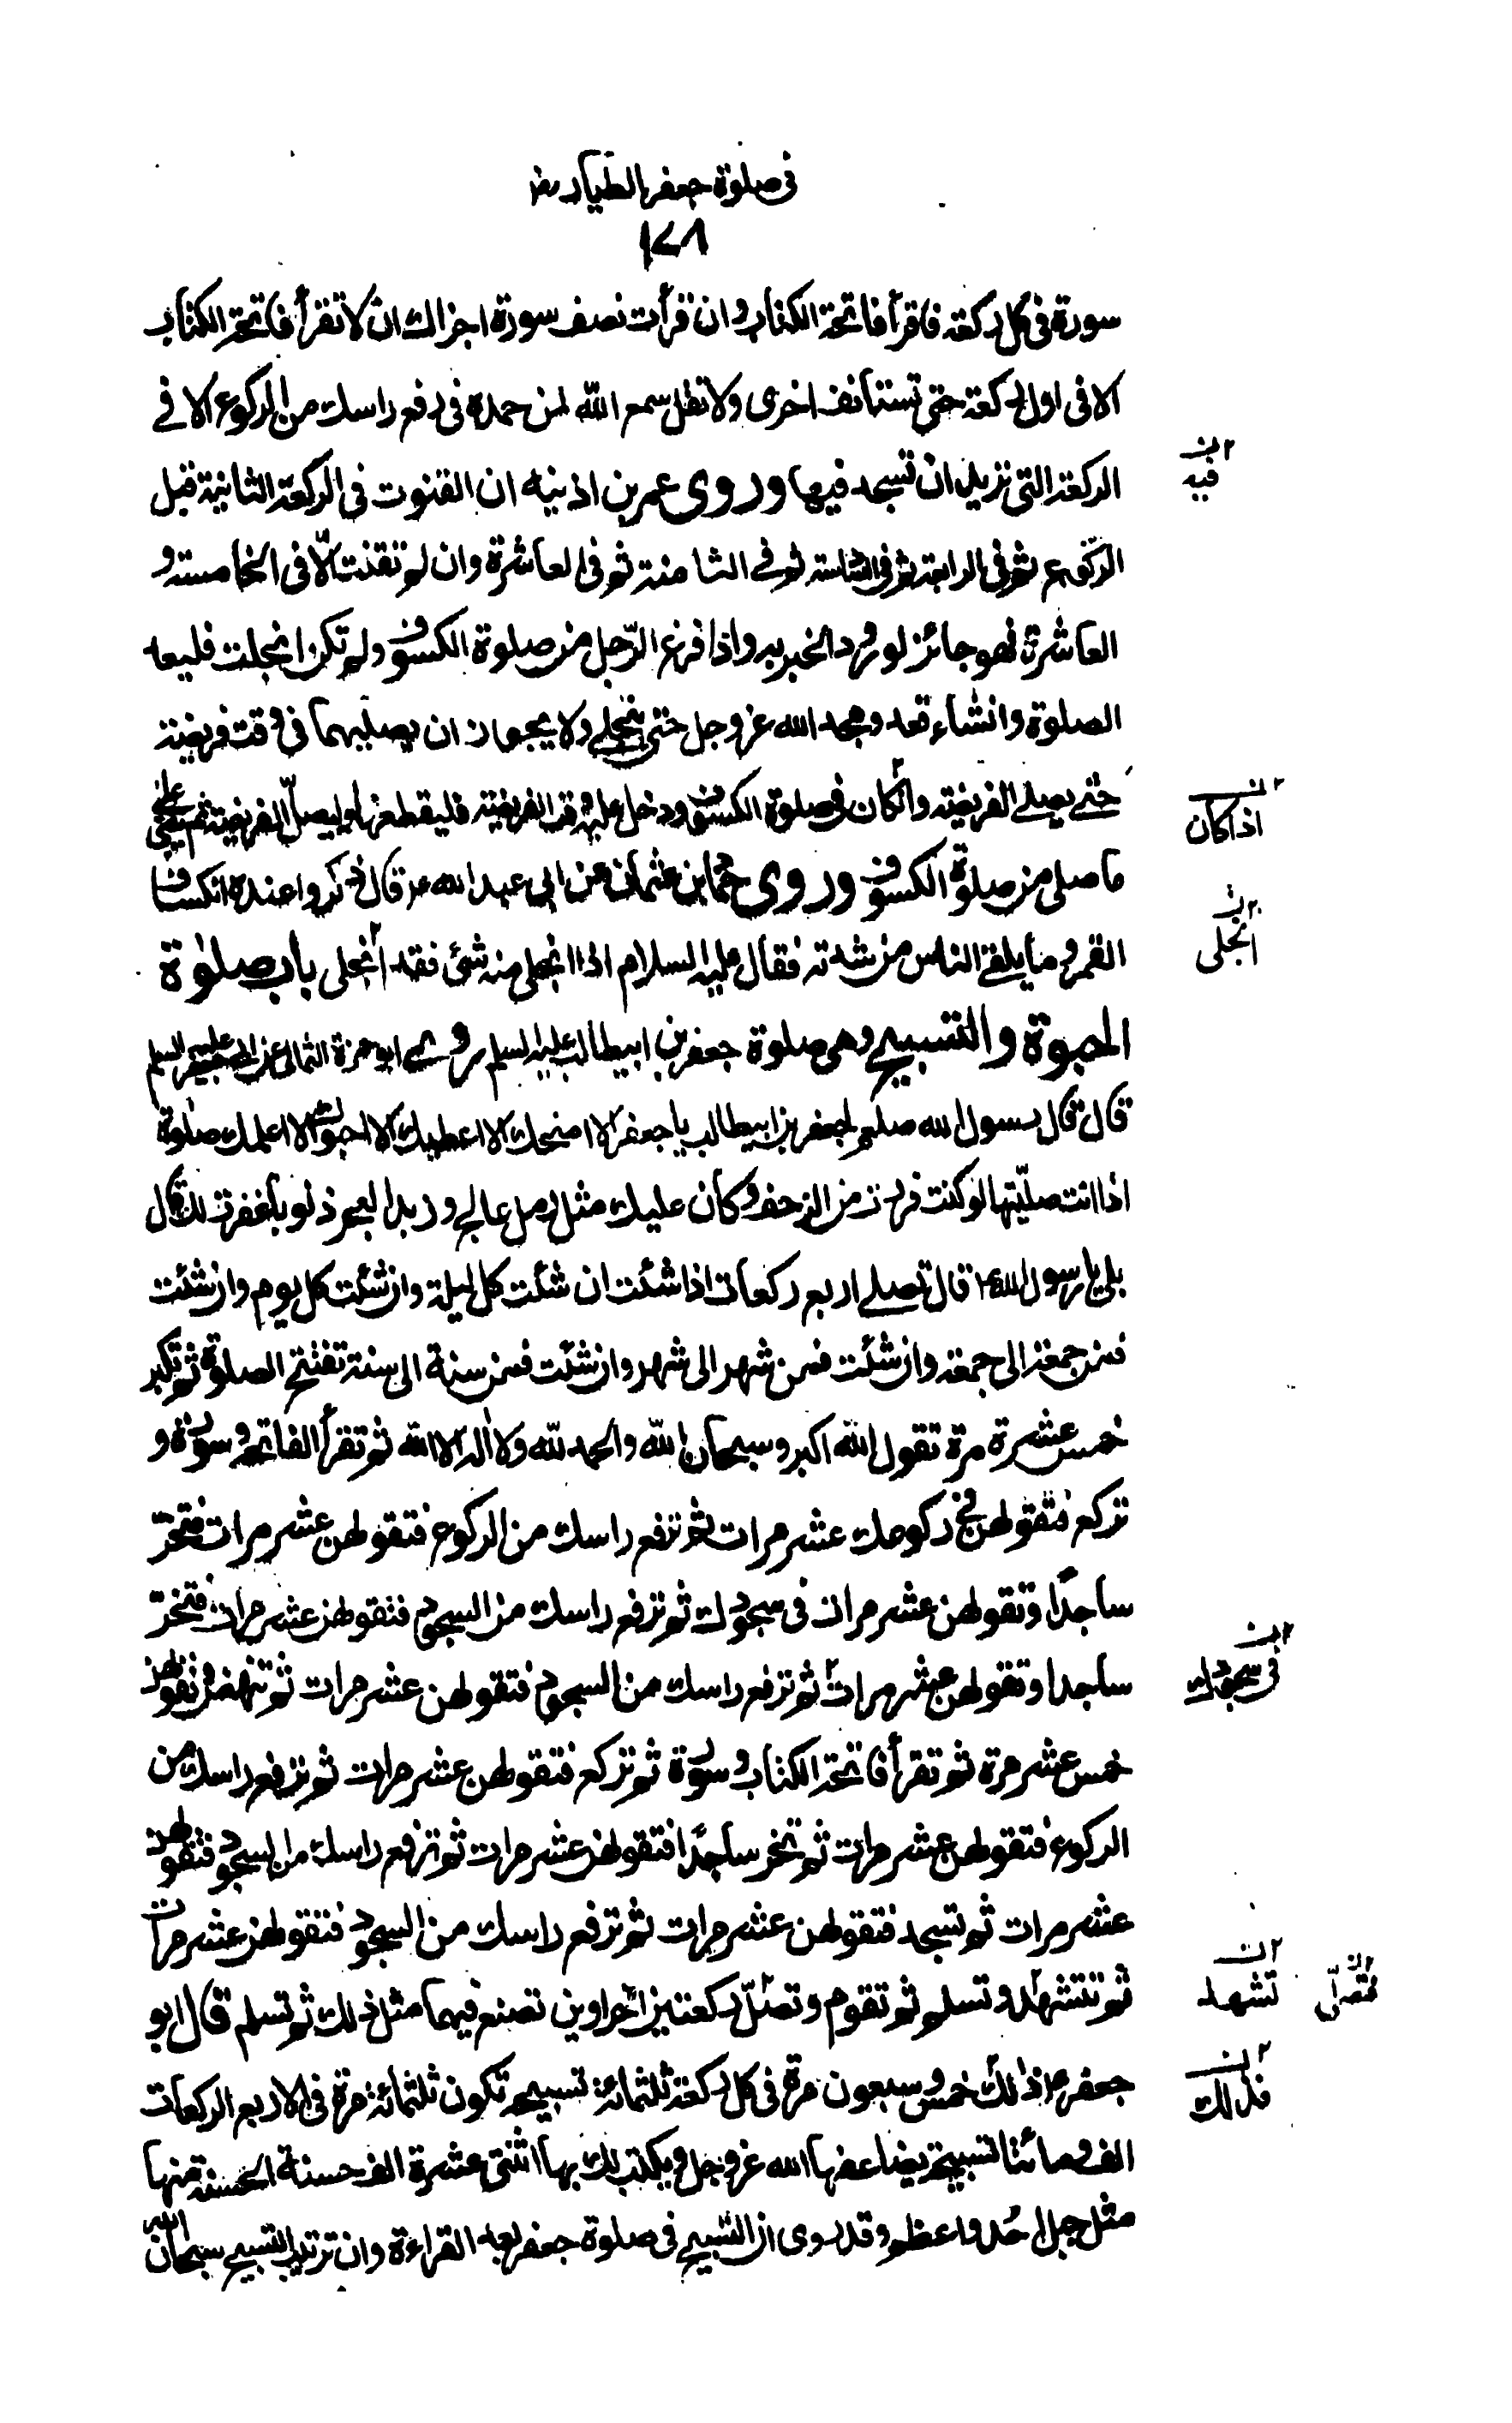 فى صلوة جعفر الطيار رض
١٤٨
سورة فى كل ركعة فاقرأ فاتحة الكتاب وان قرأت نصف سورة اجزاك ان لا تقرأ فاتحة الكتاب
الا فى اول ركعة حتى تستأنف اخرى ولا تقل سمع الله لمن حمده فى رفع راسك من الركوع الا فى
الركعة التى تريد ان تسجد فيها وروى عمر بن اذينه ان القنوت فى الركعة الثانية قبل
الركوع ثم فى الرابعة ثم فى السادسة ثم فى الثامنة ثم فى العاشرة وان لم تقنت الّا فى الخامسة و
العاشرة فهو جائز لورود الخبر به واذا فرغ الرّجل من صلوة الكسوف ولم تكن انجلت فليعد
الصلوة وان شاء قعد ومجد الله عز وجل حتى ينجلى ولا يجوز ان يصليهما فى وقت فريضة
حتى يصلى الفريضة وان كان فى صلوة الكسوف ودخل عليه وقت الفريضة فليقطعها وليصلّ الفريضة ثم يبنى على
ما صلى من صلوة الكسوف وروى حماد بن عثمان عن ابى عبد الله ع قال ذكروا عنده انكساف
القمر وما يلقى الناس من شدته فقال عليه السلام اذا انجلى منه شئ فقد انجلى باب صلوة
الحبوة والتسبيح وهى صلوة جعفر بن ابيطالب عليه السلم روى ابو حمزة الثمالى عن ابى جعفر عليه السلم
قال قال رسول الله صلعم لجعفر بن ابيطالب يا جعفر الا امنحك الا اعطيك الا احبوك الا اعلمك صلوة
اذا انت صليّتها لو كنت فررت من الزحف وكان عليك مثل رمل عالج وزبد البحر ذنوبا غفرت لك قال
بلى يا رسول الله ص قال تصلى اربع ركعات اذا شئت ان شئت كل ليلة وان شئت كل يوم وان شئت
فمن جمعة الى جمعة وان شئت فمن شهر الى شهر وان شئت فمن سنة الى سنة تفتتح الصلوة ثم تكبر
خمس عشرة مرة تقول الله اكبر وسبحان الله والحمد لله ولا اله الا الله ثم تقرأ الفاتحة وسورة و
تركع فتقولهن فى ركوعك عشر مرات ثم ترفع راسك من الركوع فتقولهن عشر مرات فتخرّ
ساجدًا وتقولهن عشر مرات فى سجودك ثم ترفع راسك من السجود فتقولهن عشر مرات فتخرّ
ساجدا وتقولهن عشر مرات ثم ترفع راسك من السجود فتقولهن عشر مرات ثم تنهض وتقولهن
خمس عشر مرة ثم تقرأ فاتحة الكتاب وسورة ثم تركع فتقولهن عشر مرات ثم ترفع راسك من
الركوع فتقولهن عشر مرات ثم تخر ساجدًا فتقولهن عشر مرات ثم ترفع راسك من السجود فتقولهن
عشر مرات ثم تسجد فتقولهن عشر مرات ثم ترفع راسك من السجود فتقولهن عشر مرات
ثم تتشهد وتسلم ثم تقوم وتصلّ ركعتين اخراوين تصنع فيهما مثل ذلك ثم تسلم قال ابو
جعفر ع ذلك خمس وسبعون مرة فى كل ركعة ثلثمائة تسبيحة تكون ثلثمائة مرة فى الاربع الركعات
الف ومائتا تسبيحة يضاعفها الله عز وجل ويكتب لك بها اثنتى عشرة الف حسنة الحسنة منها
مثل جبل احُد واعظم وقد روى ان التسبيح فى صلوة جعفر بعد القراءة وان ترتيب التسبيح سبحان الله
فيه
اذا كان
انجلى
فى سجودك
تشهد
فتصلّى
فذلك